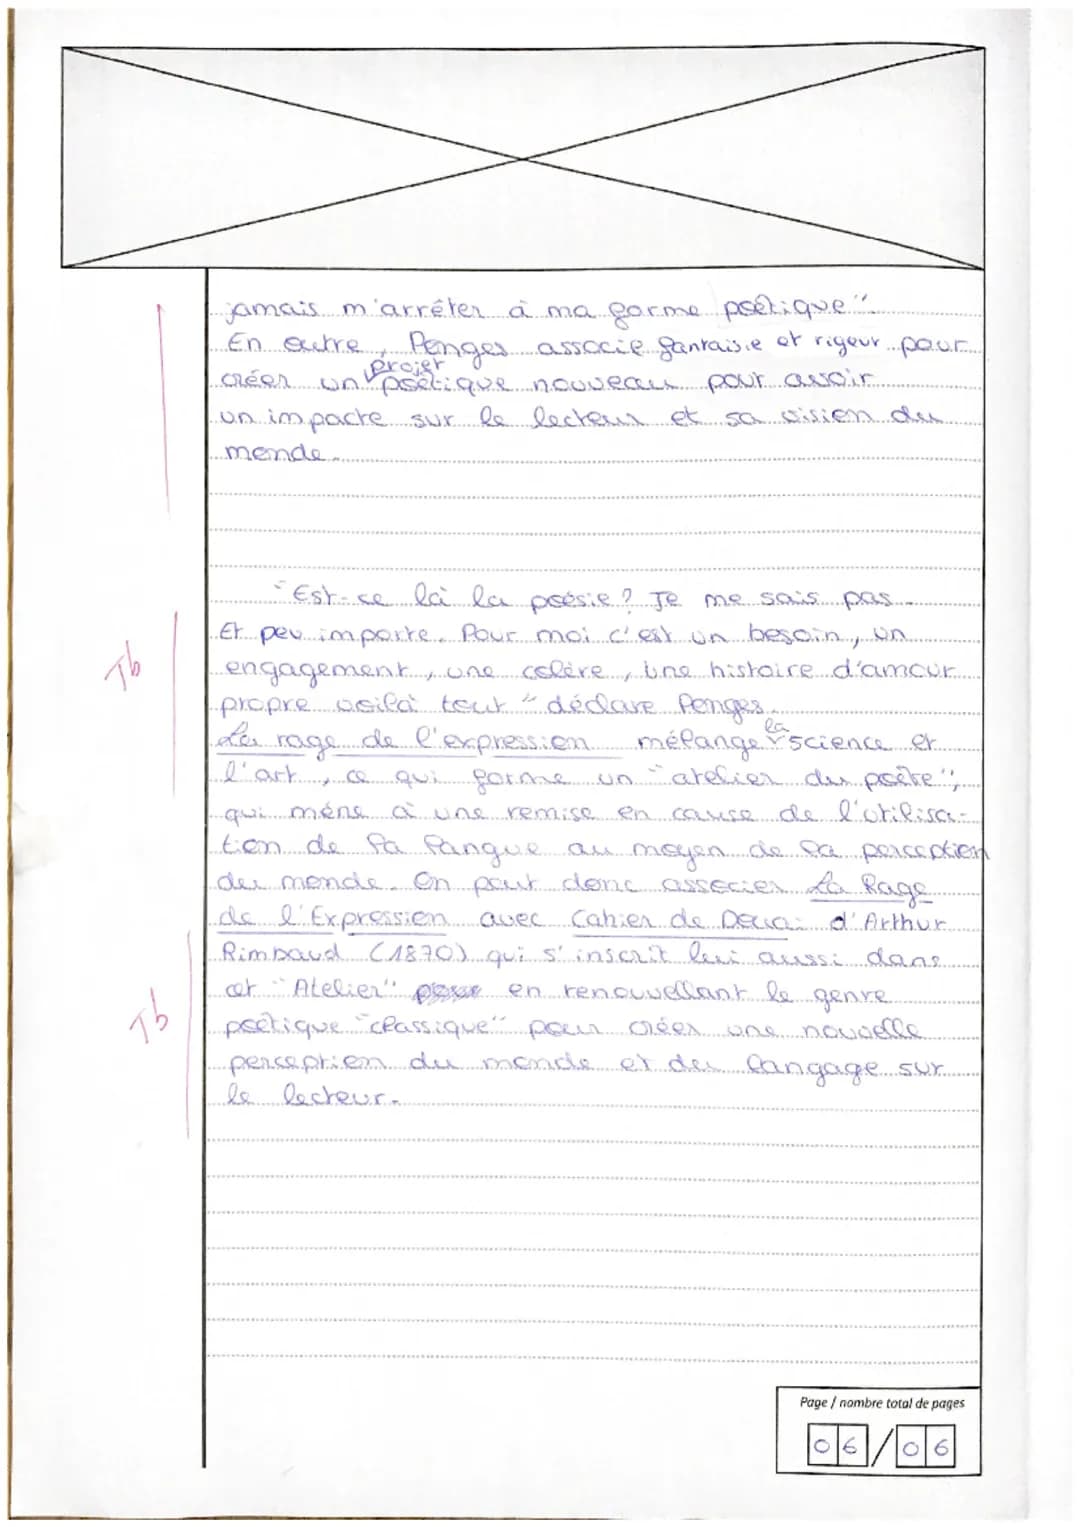 jamais m'arrêter à ma forme poétique".
En outre, Ponges associe fantaisie et rigeur pour
projet
créer un poétique nouveau pour avoir
un impacte sur le lecteur et sa vision du
monde.
"Est-ce là la poésie? Je me sais pas.
Et peu importe. Pour moi c'est un besoin, un
engagement, une colère, une histoire d'amour
Tb
propre voilà tout" déclare Ponges.
la
La rage de l'expression mélange science et
l'art, ce qui forme un "atelier du poète",
qui mène à une remise en cause de l'utilisa-
tion de la langue au moyen de la perception
du monde. On peut donc associer La Rage
de l'Expression avec Cahier de Douai d'Arthur
Rimbaud (1870) qui s'inscrit lui aussi dans
cet "Atelier" en renouvellant le genre
Tb
poétique "classique" pour créer une nouvelle
perception du monde et du langage sur
le lecteur.
Page / nombre total de pages
06/06